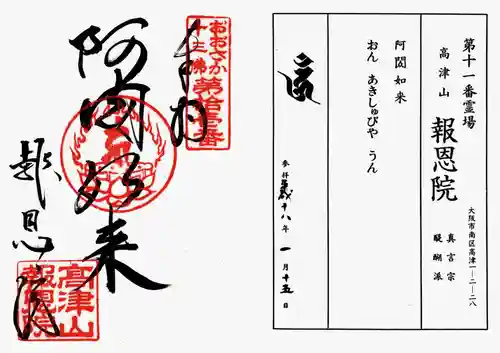 第十一番霊場
高津山 報恩院
大阪市南区高津一―二―二八
真言宗
醍醐派
阿閦如来
おん あきしゅびや うん
参拝平成十八年 一月十五日
おおさか
十三佛
第拾壱番
奉拝
阿閦如来
報恩院
高津山
報恩院